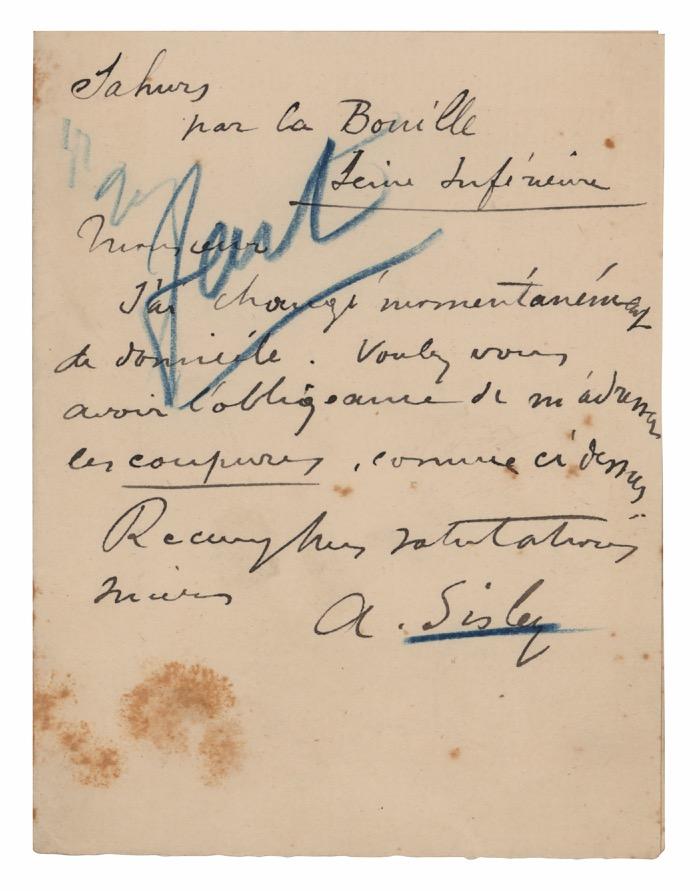 Sahurs
par la Bouille
Seine Inférieure
Monsieur
J'ai changé momentanément
de domicile. Voulez vous
avoir l'obligeance de m'adresser
les coupures, comme ci dessus
Recevez mes salutations
A. Sisley